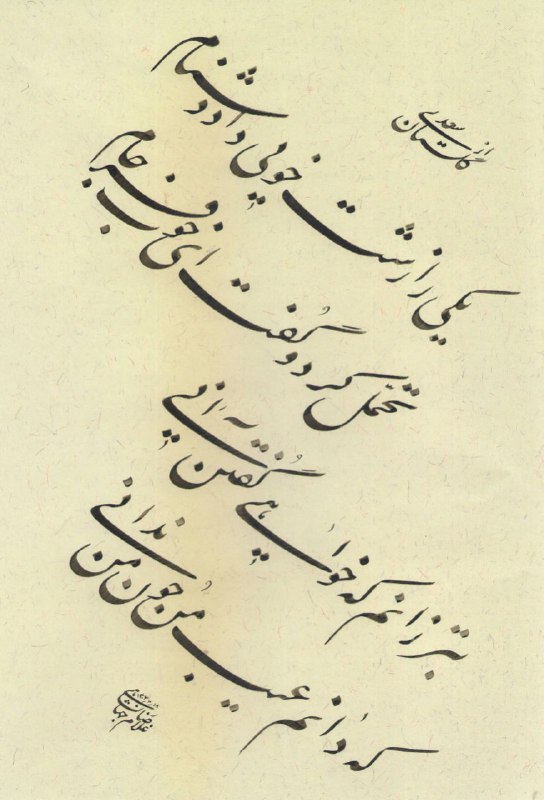 از گلستان سعدی
یکی را زشت خویی داد دشنام
تحمّل کرد و گفت ای خوب فرجام
بتر زانم که خواهی گفتن آنی
که دانم عیب من چون من ندانی